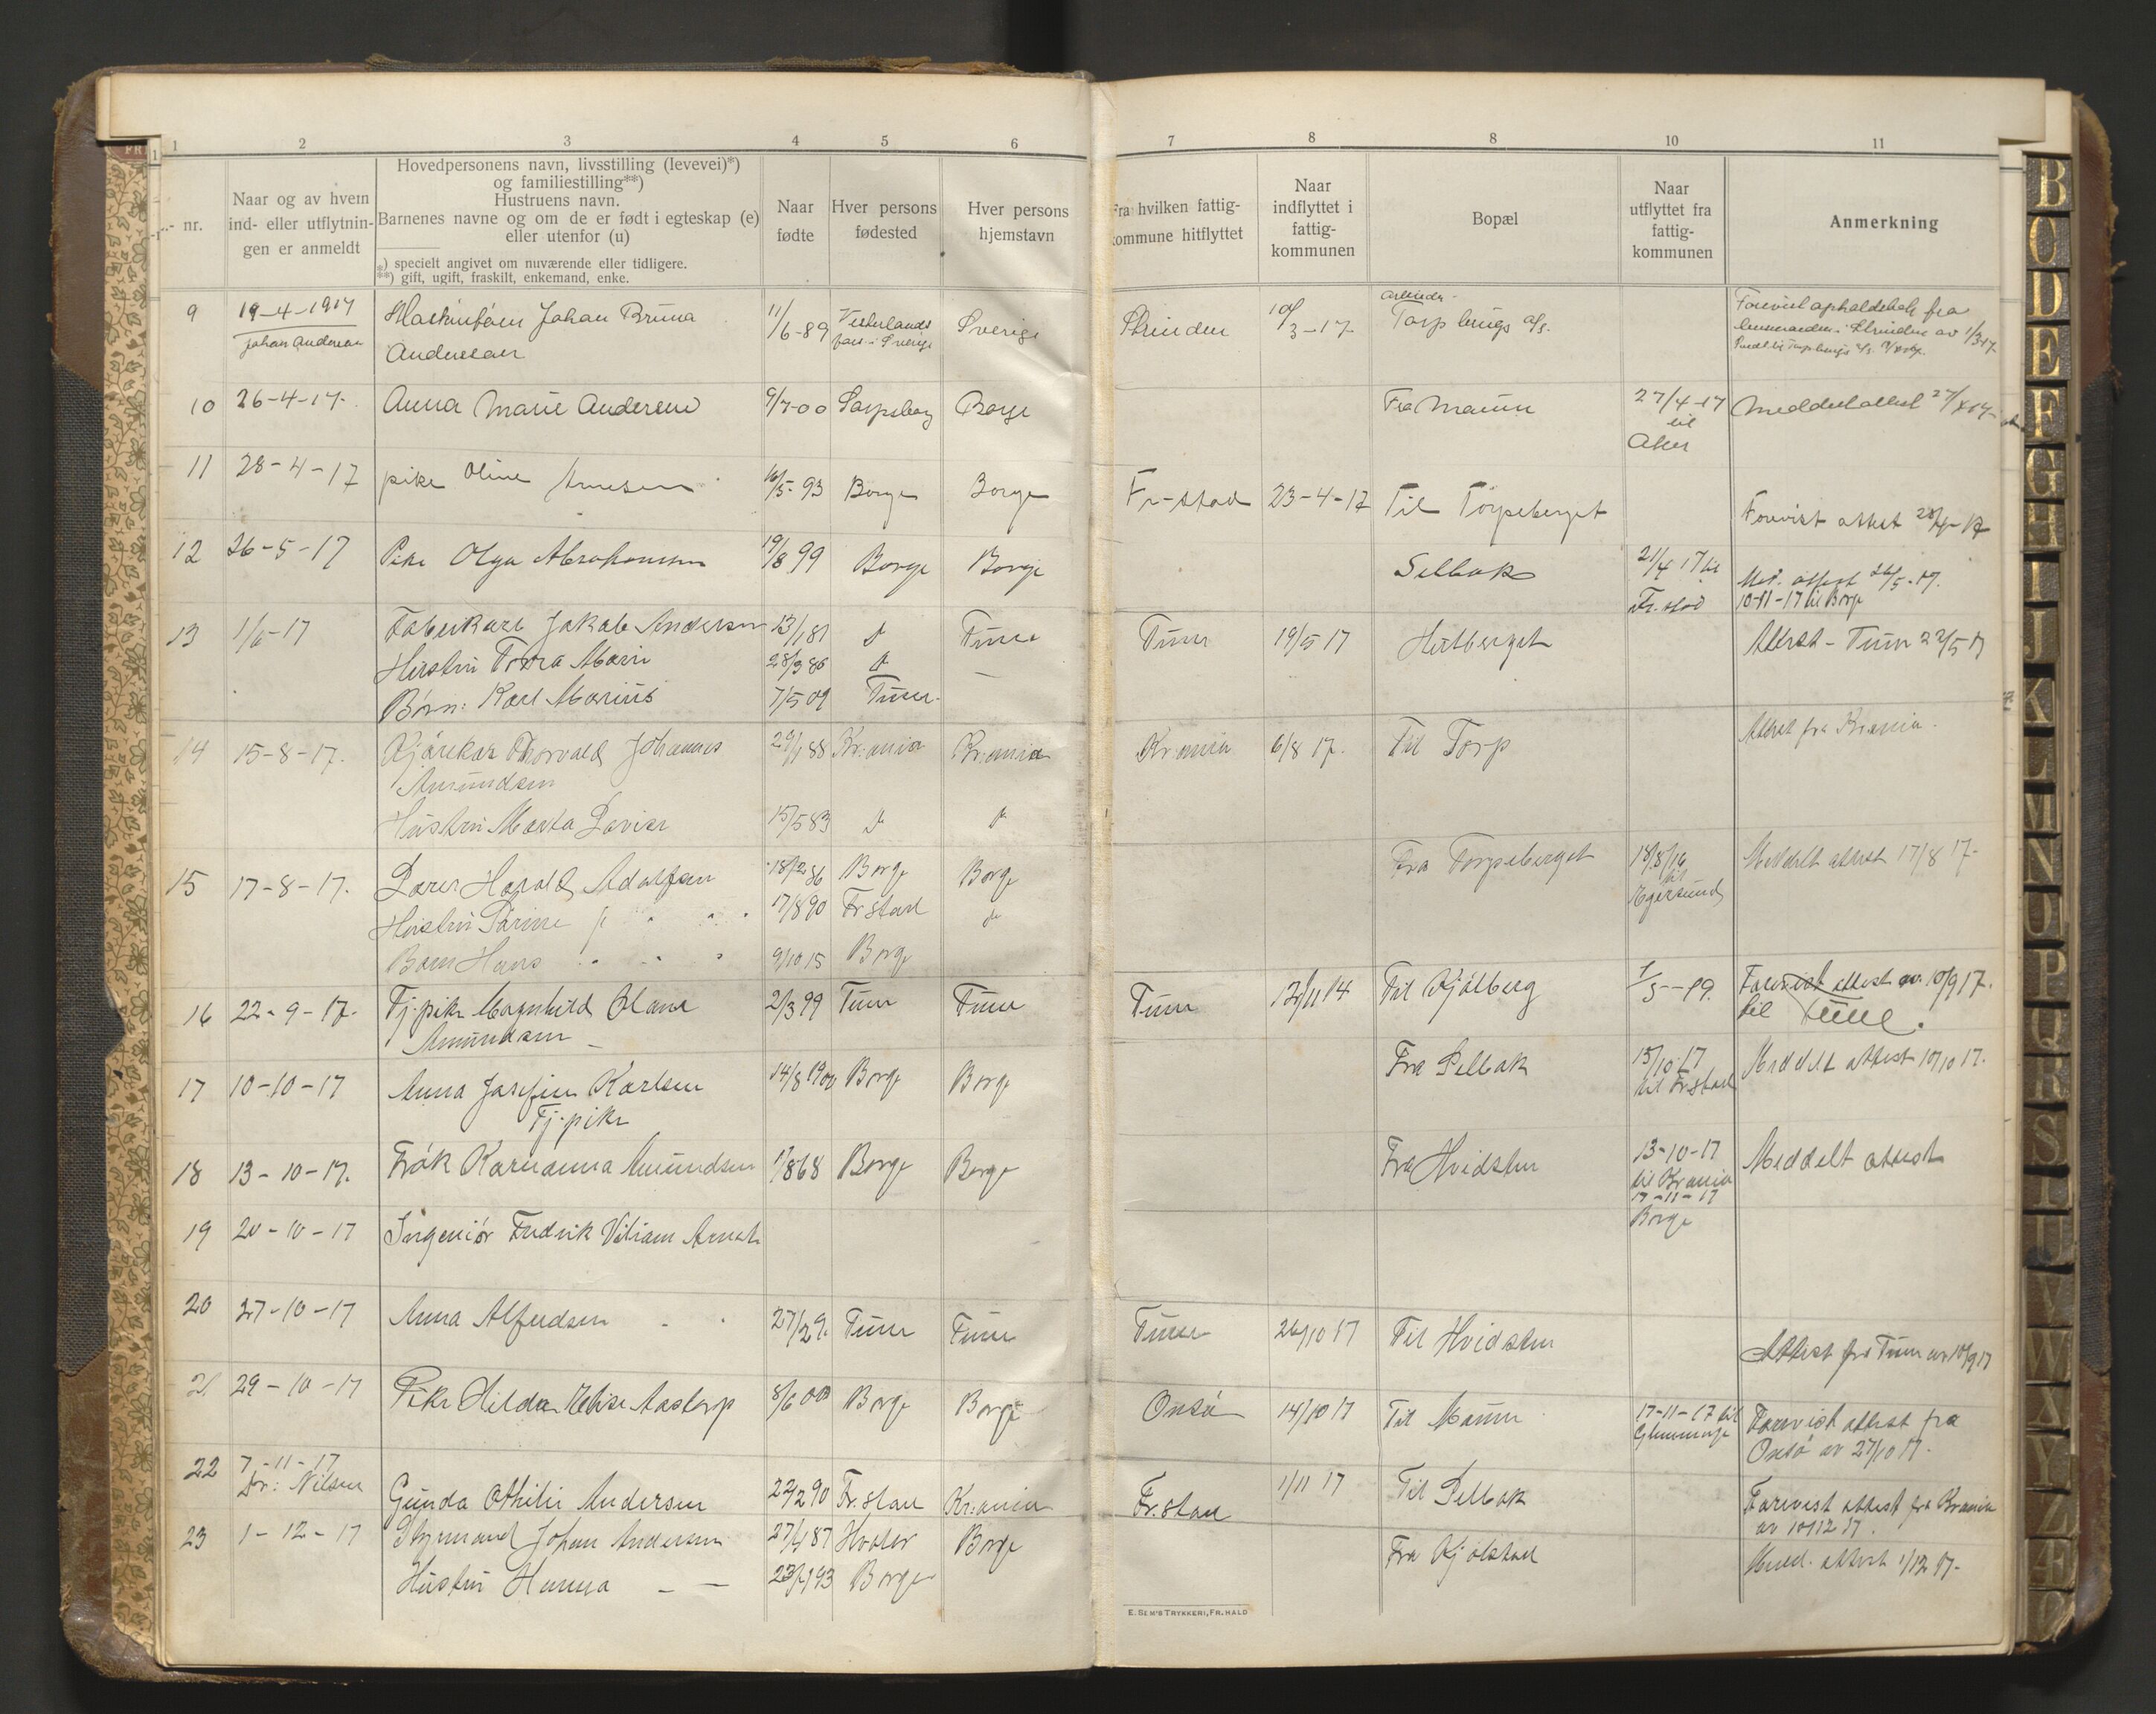 1 2 3 4 5 6 7 8 8 10 11
nr.
Naar og av hvem
ind- eller utflytnin-
gen er anmeldt
Hovedpersonens navn, livsstilling (levevei)*)
og familiestilling**)
Hustruens navn.
Barnenes navne og om de er født i egteskap (e)
eller utenfor (u)
*) specielt angivet om nuværende eller tidligere.
**) gift, ugift, fraskilt, enkemand, enke.
Naar
fødte
Hver persons
fødested
Hver persons
hjemstavn
Fra hvilken fattig-
kommune hitflyttet
Naar
indflyttet i
fattig-
kommunen
Bopæl
Naar
utflyttet fra
fattig-
kommunen
Anmerkning
9 19-4-1917 Johan Bruno 11/6-89 Sverige Strinden 10/3-17 Torp brugs a/s.
Johan Andersen Andersen i Sverige
10 26-4-17. Anna Marie Andersen 9/7-00 Sarpsborg Borge Fra Maum 27/4-17 Meddelt attest 27/4-17
til
Aker
11 28-4-17 pike Oline Arnesen 16/5-93 Borge Borge Fr-stad 23-4-17 Til Torpeberget Forevist attest 28/4-17
12 26-5-17 Pike Olga Abrahamsen 19/8 99 Borge Borge Selbak 21/4 17 til Med. attest 26/5-17.
Fr.stad 10-11-17 til Borge
13 1/6-17 Jakob Andersen 13/1 81 Tune Tune 19/5 17 Attest - Tune 22/5 17
Hustru Marie 28/3 86
Børn: Karl Marius 7/5 09 Tune
14 15-8-17. Thorvald Johannes Kr:ania Kr:ania Kr:ania 6/8 17. Til Torp Attest fra Kr:ania.
Amundsen
Hustru Marta Lovise 15/5 83
15 17-8-17. Harald Adolfsen Borge Borge Fra Torpeberget 18/8 Meddelt attest 17/8 17.
til
Egersund
Hustru 17/8 90 Fr.stad
Barn Hans 9/10 15 Borge
16 22-9-17. Tj.pike Magnhild Olana 2/3 99 Tune Tune Tune Til Kjølberg Forevist attest av 10/9 17.
Amundsen til Tune.
17 10-10-17 Anna Josefine Karlsen 14/8 1900 Borge Borge Fra Selbak 15/10-17 Meddelt attest 10/10 17.
Tj.pike til Fr.stad
18 13-10-17. Frøk Amundsen Borge Borge Fra Hvidsten 13-10-17 Meddelt attest
til Kr:ania
Borge
19 20-10-17 Ingeniør Fredrik Viliam
20 27-10-17 Anna Alfredsen Tune Tune Tune 26/10 17 Til Hvidsten Attest fra Tune av 10/9 17
21 29-10-17 Pike Hilda Elise Aastorp 8/6 00 Borge Borge Onsø 14/10 17 Til Maum 17-11-17 til Forevist attest fra
Glemminge Onsø av 27/10 17.
22 7-11-17
Nilsen Gunda Othilie Andersen 22/2 90 Fr.stad Kr:ania Fr.stad 1/11 17 Til Selbak Forevist attest fra Kr:ania
23 1-12-17 Styrmand Johan Andersen 27/4 87 Hvaler Borge Fra Kjølstad Medd. attest 1/12 17.
Hustru Borge
E. SEM'S TRYKKERI, FR.HALD
B C D E F G H I J K L M N O P Q R S T U V W X Y Z Æ Ø